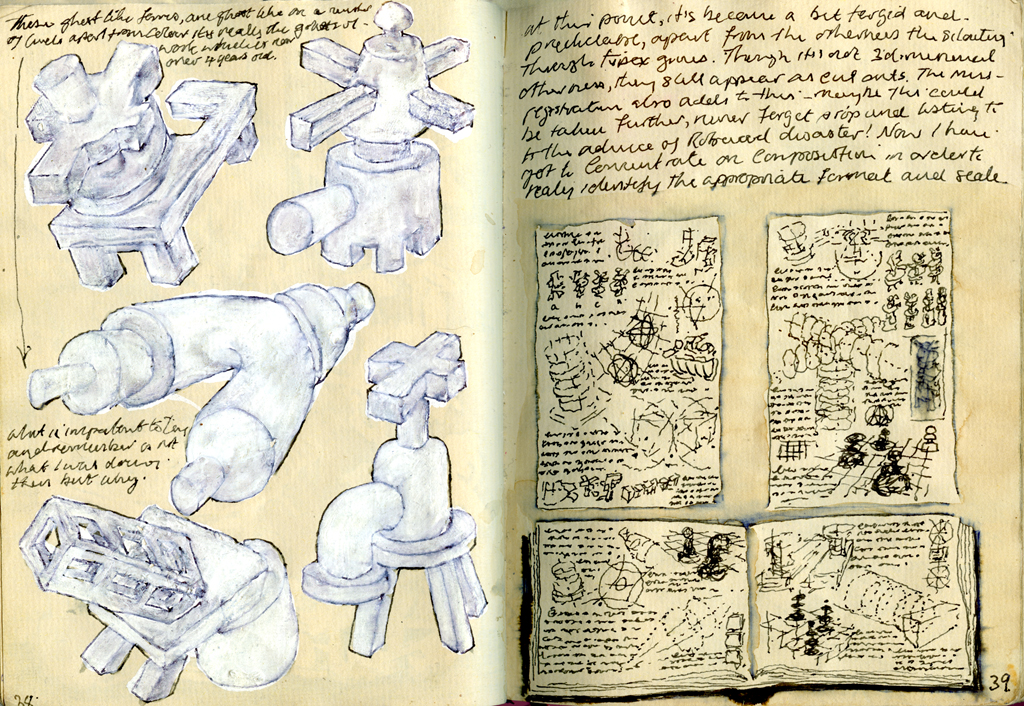 These ghost like forms, are ghost like on a number
of levels apart from colour its really the ghost of
work which is now
over 4 years old.
what is important to Try
and remember is not
what I was doing
then but why.
38.
at this point, it's become a bit turgid and
predictable, apart from the otherness the
Through Tipex gives. Though it's not 3 dimensional
otherness, they still appear as cut outs. The miss-
registration also adds to this - maybe this could
be taken further, never forget stop and listening to
to the advice of disaster! Now I have
got to concentrate on Composition in order to
really identify the appropriate format and scale
39